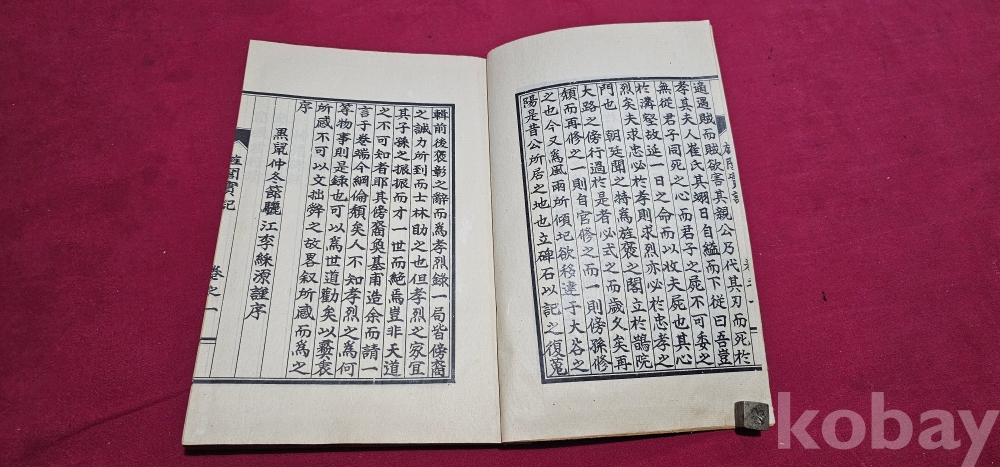 適遇賊而賊欲害其親公乃代其刃而死於
孝其夫人崔氏其翊日自縊而下從曰吾豈
無從君子同死之心而君子之屍不可委之
於溝壑故延一日之命而以收夫屍也其心
烈矣夫求忠必於孝則求烈亦必於忠孝之
門也 朝廷聞之特爲旌褒之閣立於鵲院
大路之傍行過於是者必式之而歲久矣再
頹而再修之一則自官修之而一則傍孫修
之也今又爲風雨所傾圮欲移建于大谷之
陽是昔公所居之地也立碑石以記之復蒐
輯前後褒彰之辭而爲孝烈錄一局皆傍裔
之誠力所到而士林助之也但孝烈之家宜
其子孫之振振而才一世而絶焉豈非天道
之不可知者耶其傍裔奐基甫造余而請一
言于卷端今綱倫頹矣人不知孝烈之爲何
等物事則是錄也可以爲世道勸矣以藝衰
所感不可以文拙辭之故畧叙所感而爲之
序
黑鼠仲冬節驪江李綵源謹序
旌閭實記
卷之一
kobay